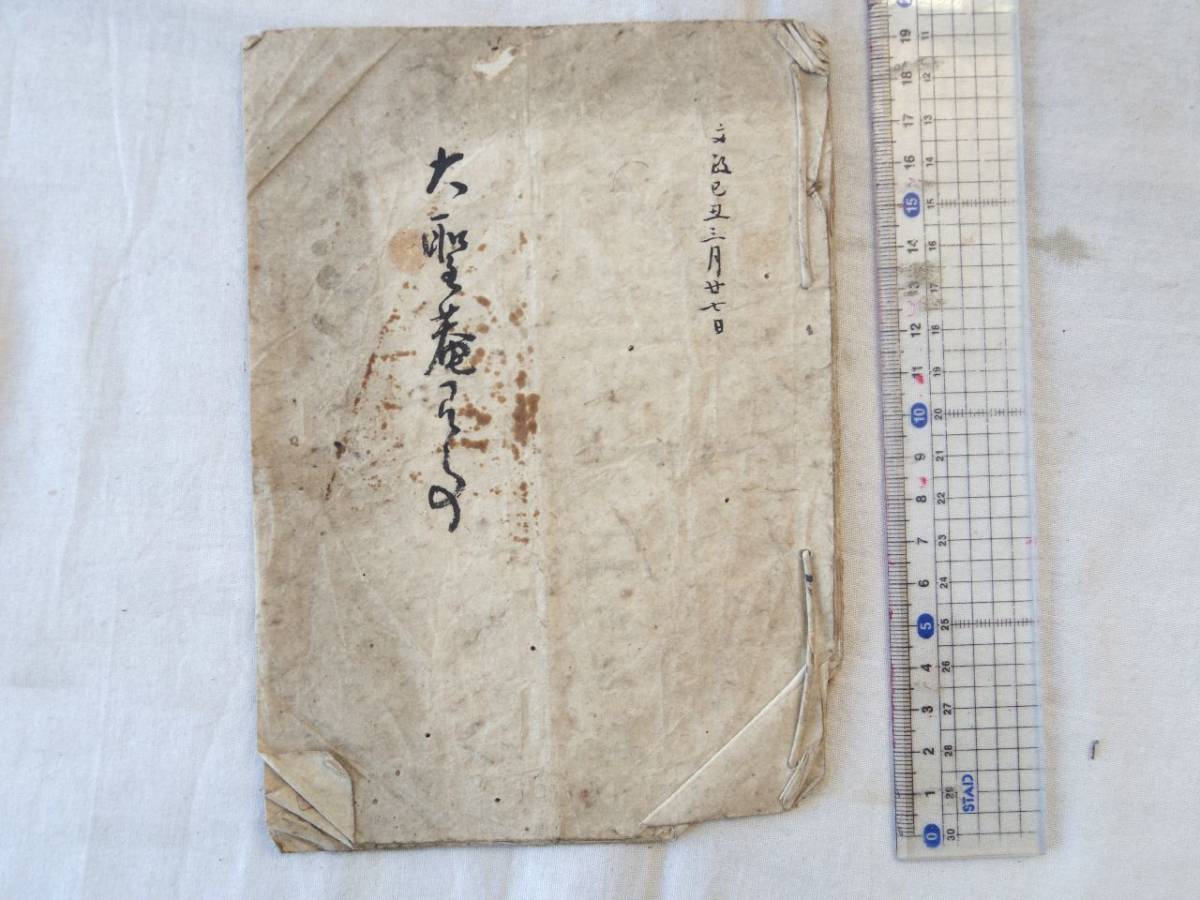 文政己丑三月廿七日
大聖菴
19 18 17 16 15 14 13 12 11 10 9 8 7 6 5 4 3 2 1 0
11 12 13 14 15 16 17 18 19 20 21 22 23 24 25 26 27 28 29 30
STAD